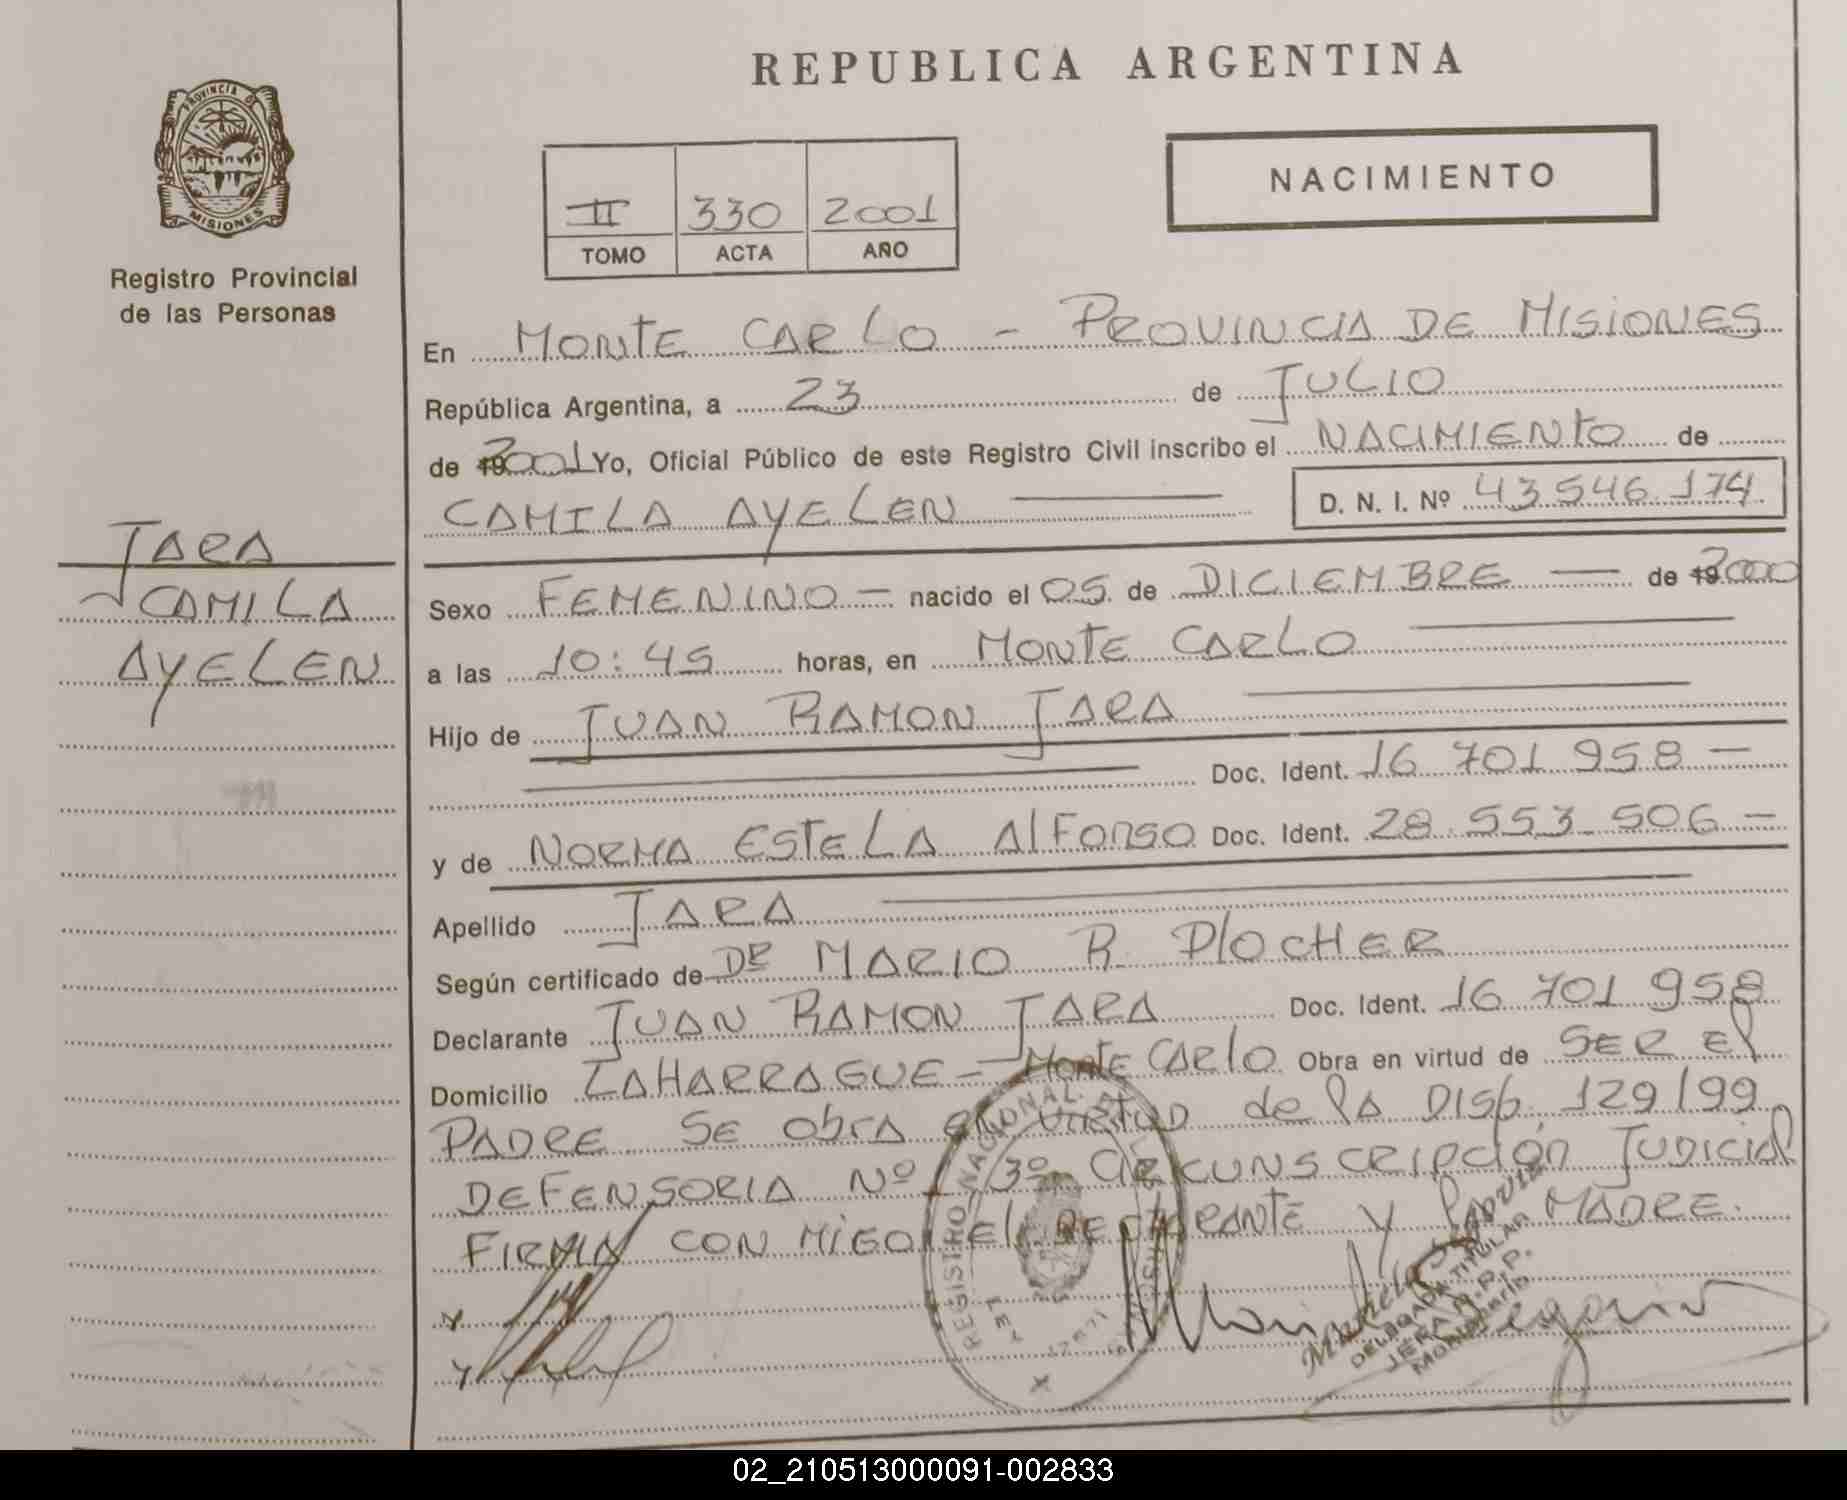 REPUBLICA ARGENTINA
PROVINCIA DE
MISIONES
Registro Provincial
de las Personas
II 330 2001
TOMO ACTA AÑO
NACIMIENTO
En MONTE CARLO - PROVINCIA DE MISIONES
República Argentina, a 23 de JULIO
de 192001 Yo, Oficial Público de este Registro Civil inscribo el NACIMIENTO de
CAMILA AYELEN D. N. I. Nº 43.546.174
JARA
CAMILA
AYELEN
Sexo FEMENINO - nacido el 05 de DICIEMBRE — de 192000
a las 10:45 horas, en MONTE CARLO
Hijo de JUAN RAMON JARA
Doc. Ident. 16 701 958 -
y de NORMA ESTELA AlFonso Doc. Ident. 28.553 506 -
Apellido JARA
Según certificado de Dr MARIO R. PlOCHER
Declarante JUAN RAMON JARA Doc. Ident. 16 701 958
Domicilio LAHARRAGUE - MONTE CARlO Obra en virtud de SER El
PADRE SE obra en virtud de la DISP. 129/99
DEFENSORIA Nº 3º CIRCUNSCRIPCIÓN JUDICIAL
FIRMA CON MIGO El DECLARANTE Y LA MADRE.
REGISTRO NACIONAL
DELEGADA TITULAR
02_210513000091-002833